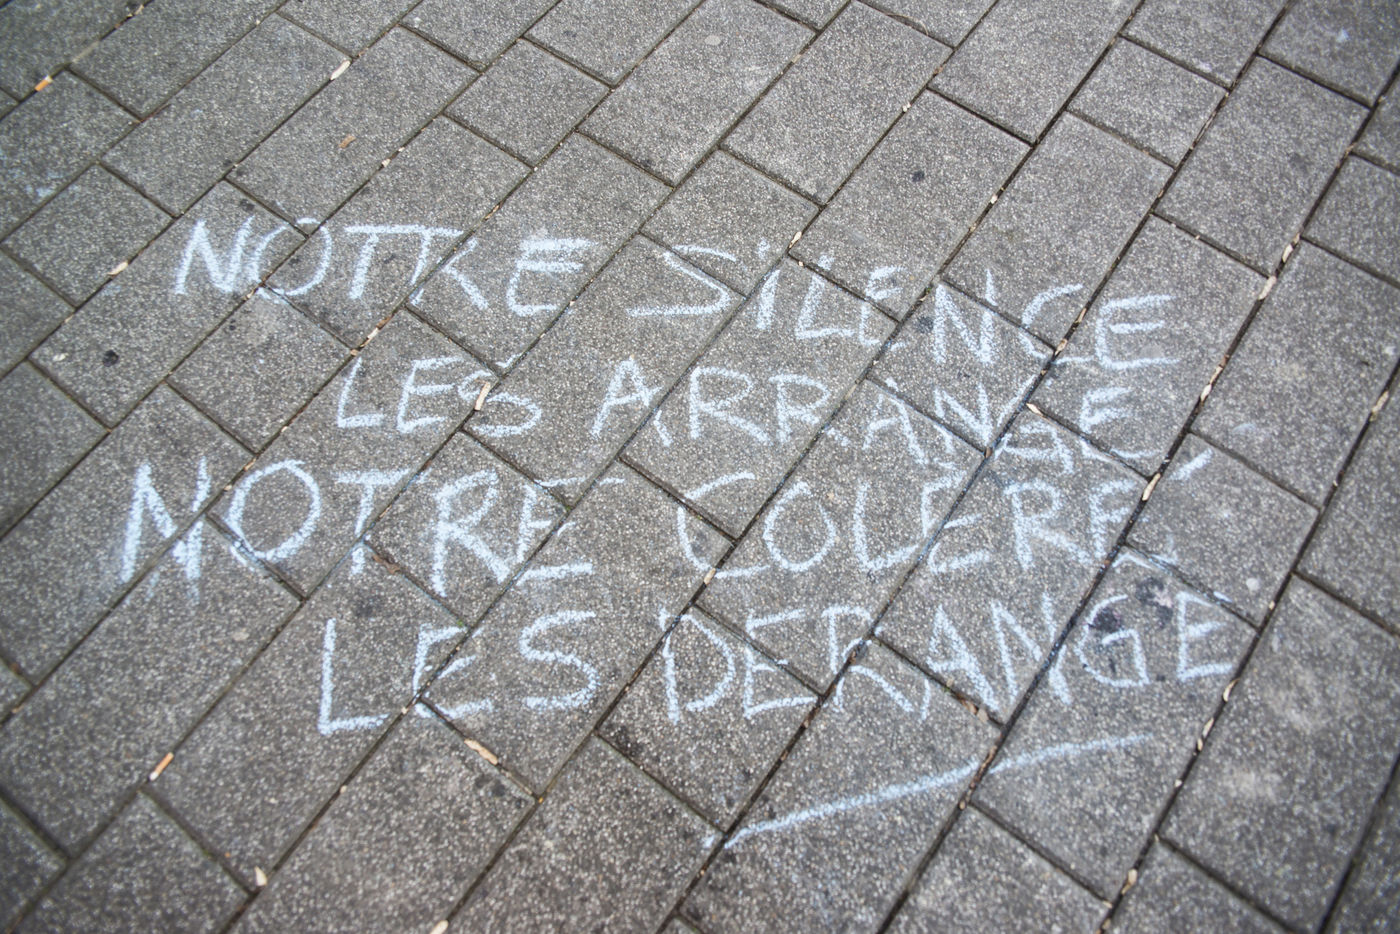 NOTRE SiLENCE
LES ARRANGE,
NOTRE COLERE
LES DERANGE